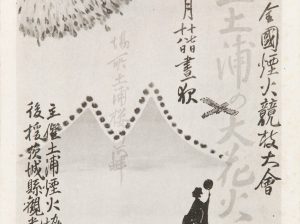 全國煙火競技大會
土浦の大花火
月十七十八日晝夜
場所土浦
主催土浦煙火協
後援茨城縣觀